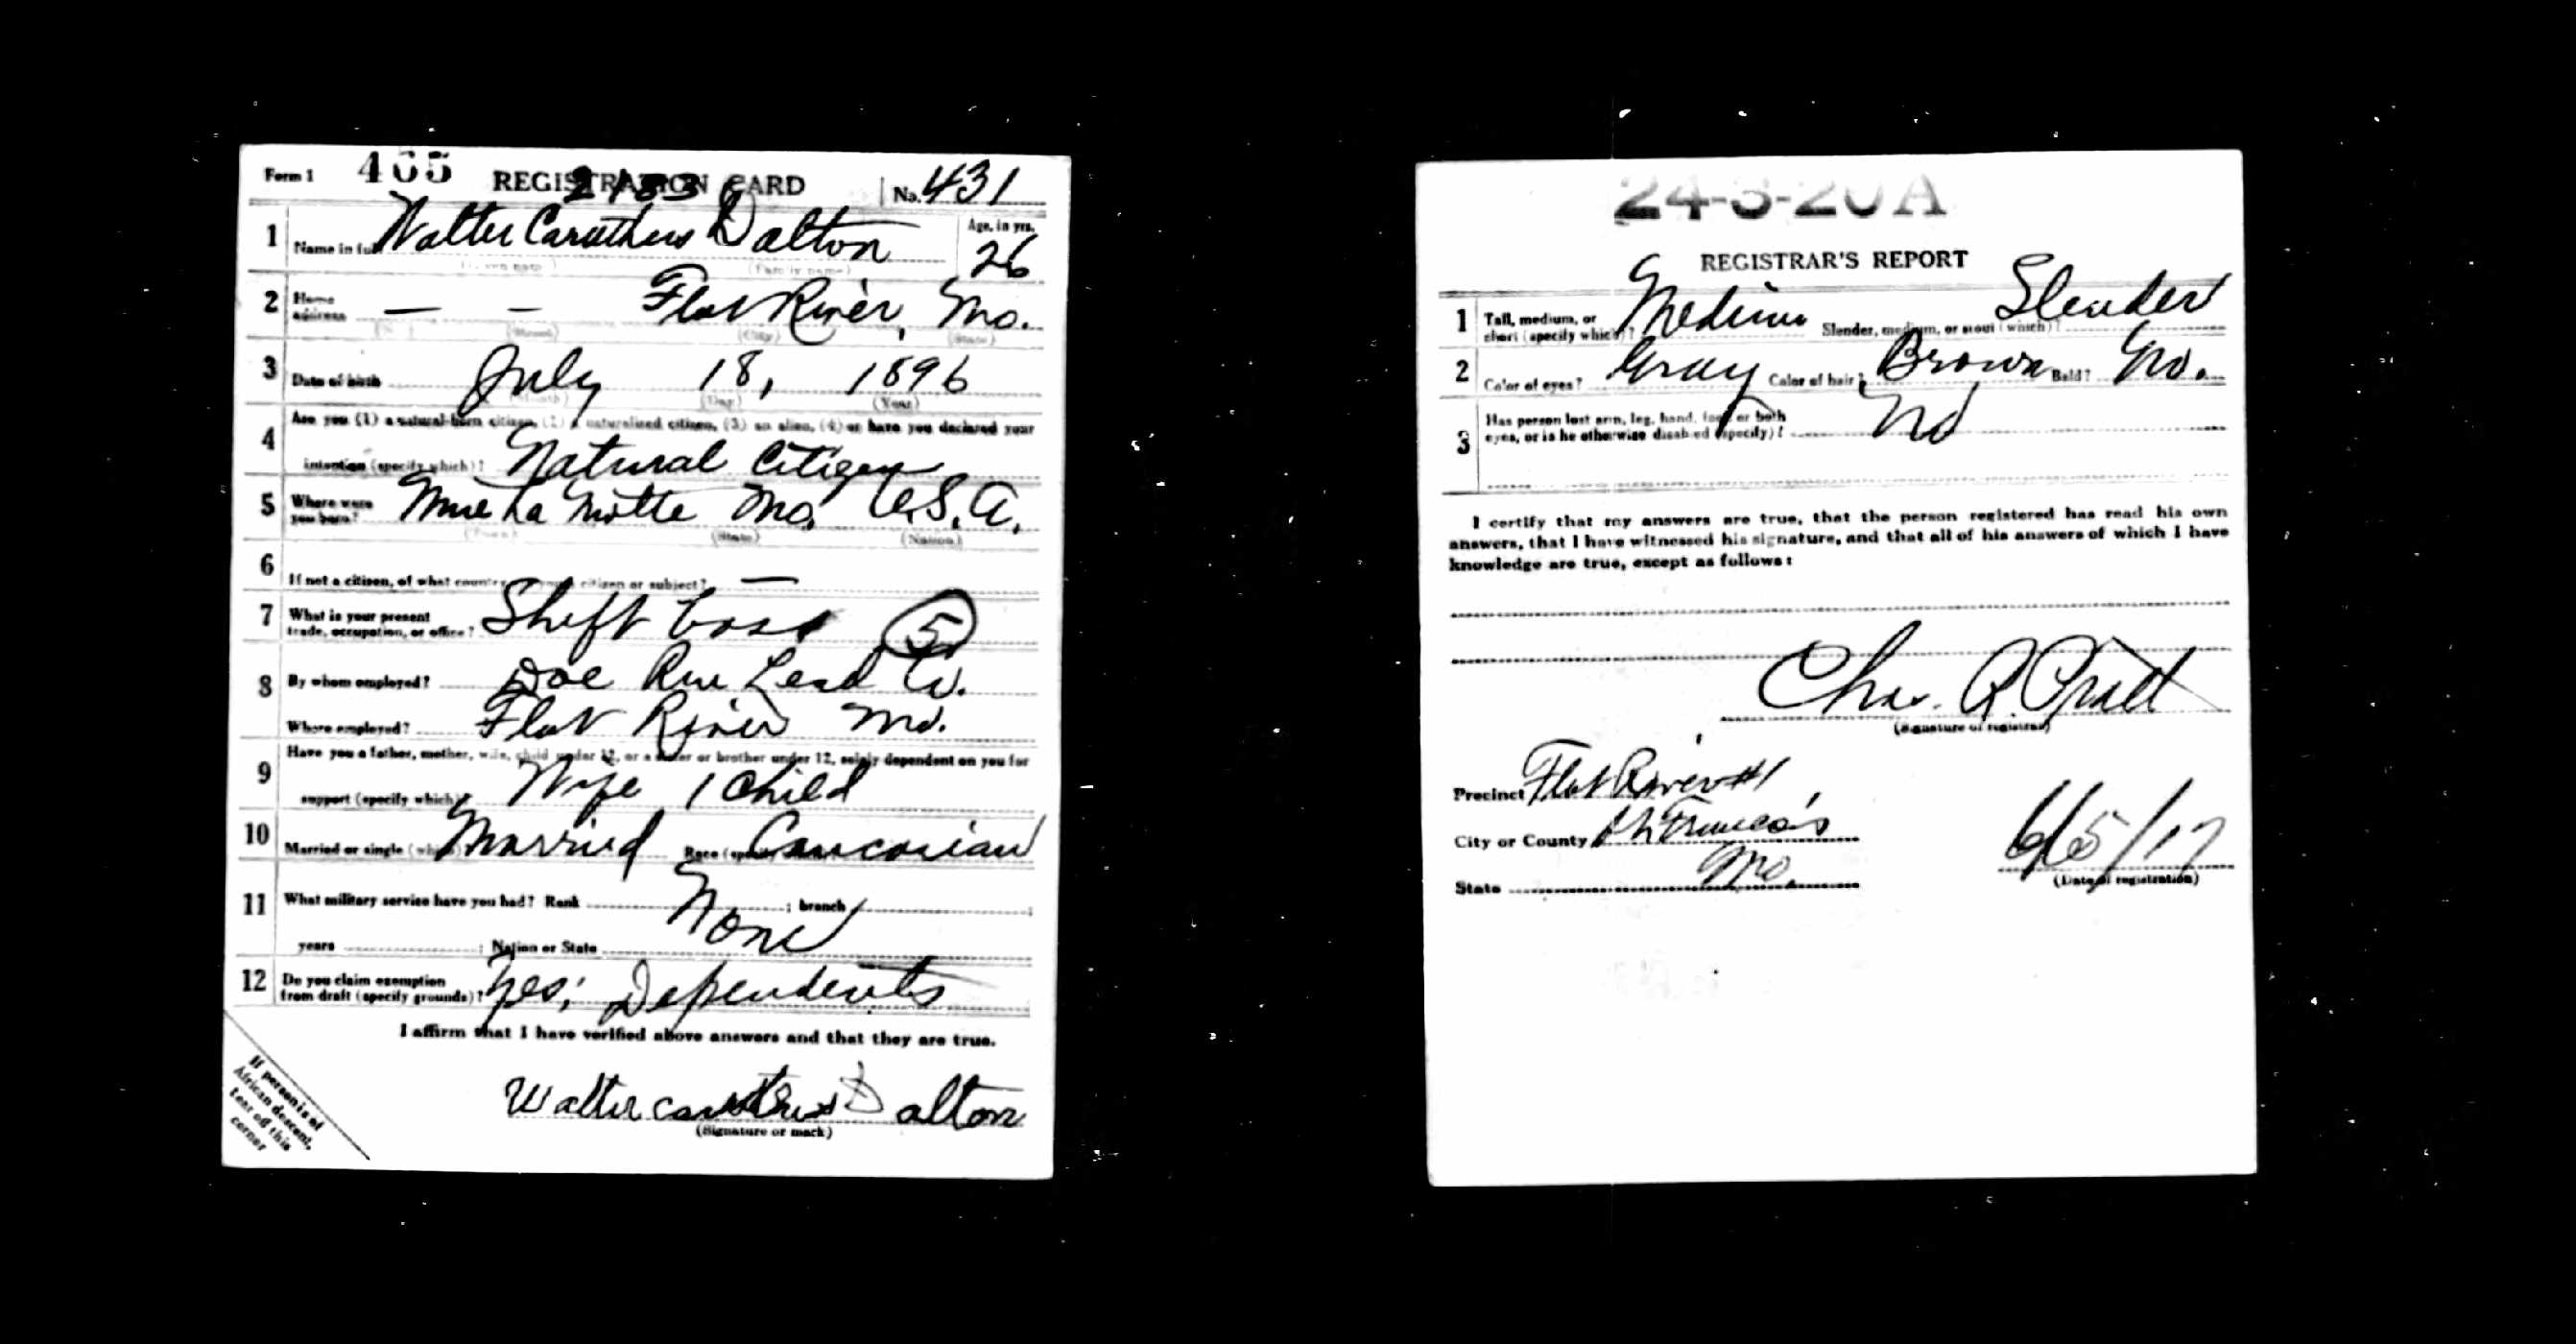 Form 1 465 REGISTRATION CARD No. 431
2183
1 Name in full Walter Caruthers Dalton Age, in yrs. 26
(Given name) (Family name)
2 Home address — — Flat River, Mo.
(No.) (Street) (City) (State)
3 Date of birth July 18, 1896
(Month) (Day) (Year)
4 Are you (1) a natural-born citizen, (2) a naturalized citizen, (3) an alien, (4) or have you declared your
intention (specify which)? Natural Citizen
5 Where were you born? Mine La Motte Mo. U.S.A.
(Town) (State) (Nation)
6 If not a citizen, of what country are you a citizen or subject? —
7 What is your present trade, occupation, or office? Shift boss 5
8 By whom employed? Doe Run Lead Co.
Where employed? Flat River Mo.
9 Have you a father, mother, wife, child under 12, or a sister or brother under 12, solely dependent on you for
support (specify which)? Wife 1 Child
10 Married or single (which)? Married Race (specify which)? Caucasian
11 What military service have you had? Rank ; branch ;
years ; Nation or State None
12 Do you claim exemption from draft (specify grounds)? Yes; Dependents
I affirm that I have verified above answers and that they are true.
Walter Dalton
(Signature or mark)
If person is of African descent, tear off this corner
24-3-20 A
REGISTRAR'S REPORT
1 Tall, medium, or short (specify which)? Medium Slender, medium, or stout (which)? Slender
2 Color of eyes? Gray Color of hair? Brown Bald? No.
3 Has person lost arm, leg, hand, foot, or both eyes, or is he otherwise disabled (specify)? No
I certify that my answers are true, that the person registered has read his own
answers, that I have witnessed his signature, and that all of his answers of which I have
knowledge are true, except as follows:
Chas. R. Pratt
(Signature of registrar)
Precinct Flat River #1
City or County St. Francois
State Mo.
6/5/17
(Date of registration)